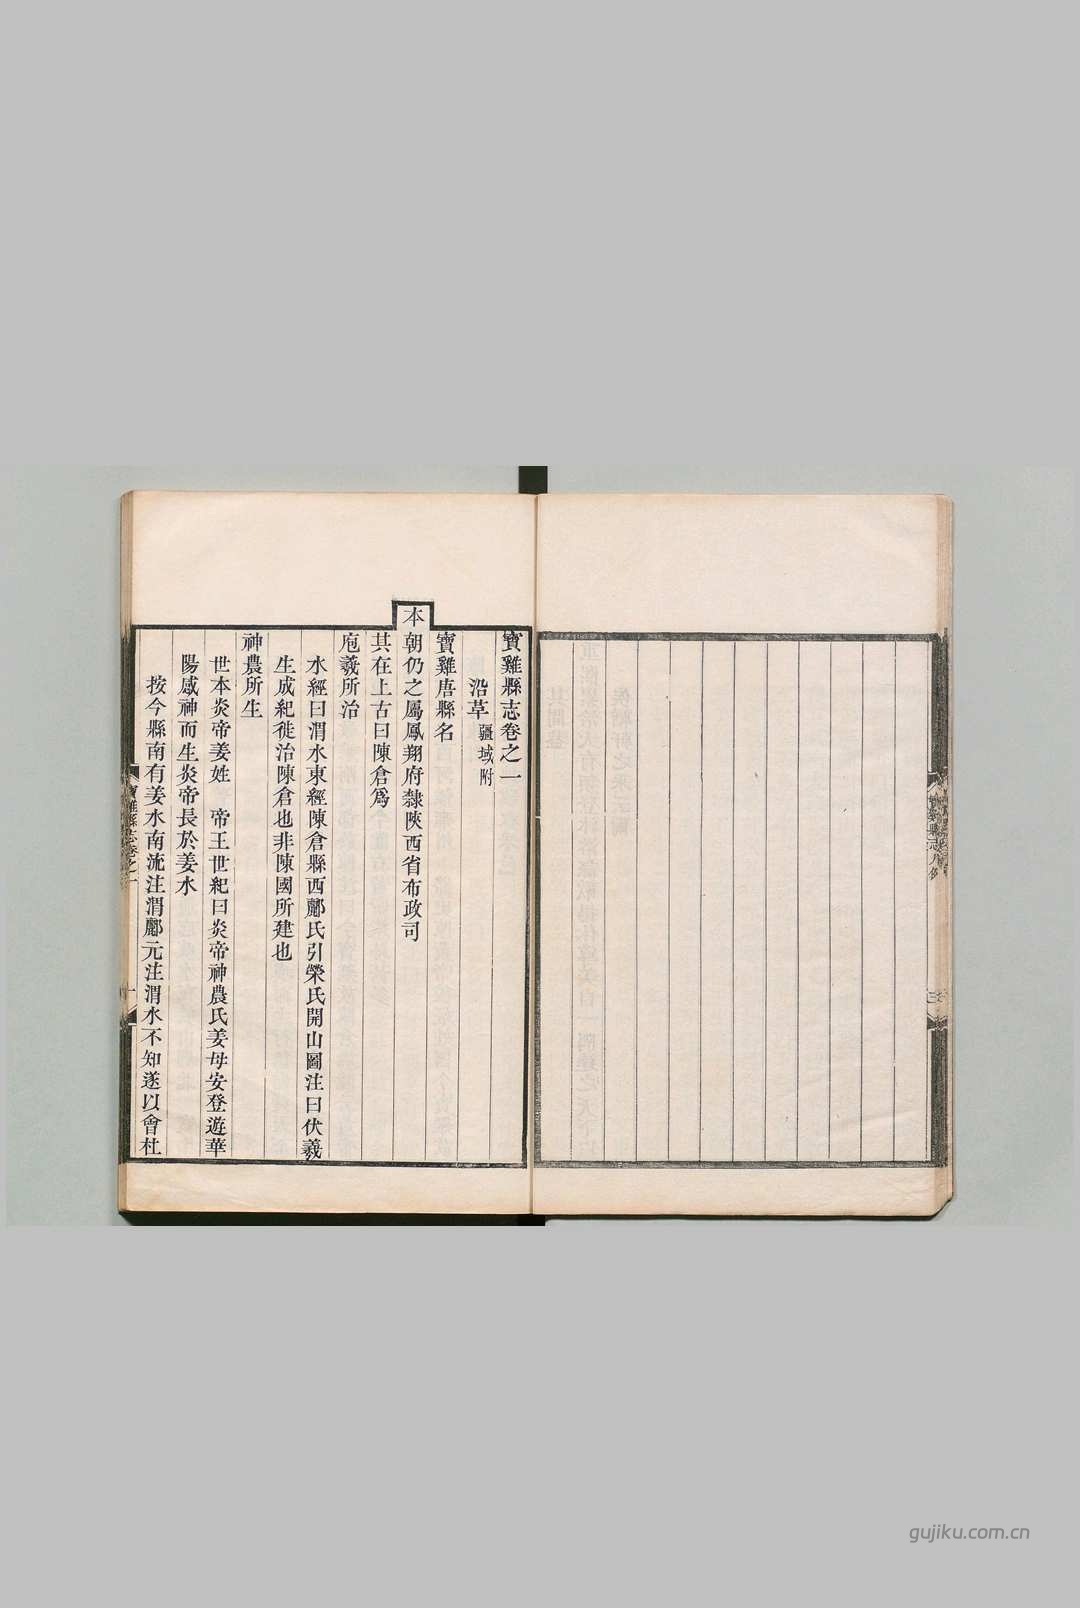 寶雞縣志卷之一
沿革 疆域附
寶雞唐縣名
本朝仍之屬鳳翔府隸陝西省布政司
其在上古曰陳倉爲
庖羲所治
水經曰渭水東經陳倉縣西酈氏引榮氏開山圖注曰伏羲
生成紀徙治陳倉也非陳國所建也
神農所生
世本炎帝姜姓 帝王世紀曰炎帝神農氏姜母安登遊華
陽感神而生炎帝長於姜水
按今縣南有姜水南流注渭酈元注渭水不知遂以會杜
寶雞縣志卷之一
一
gujiku.com.cn